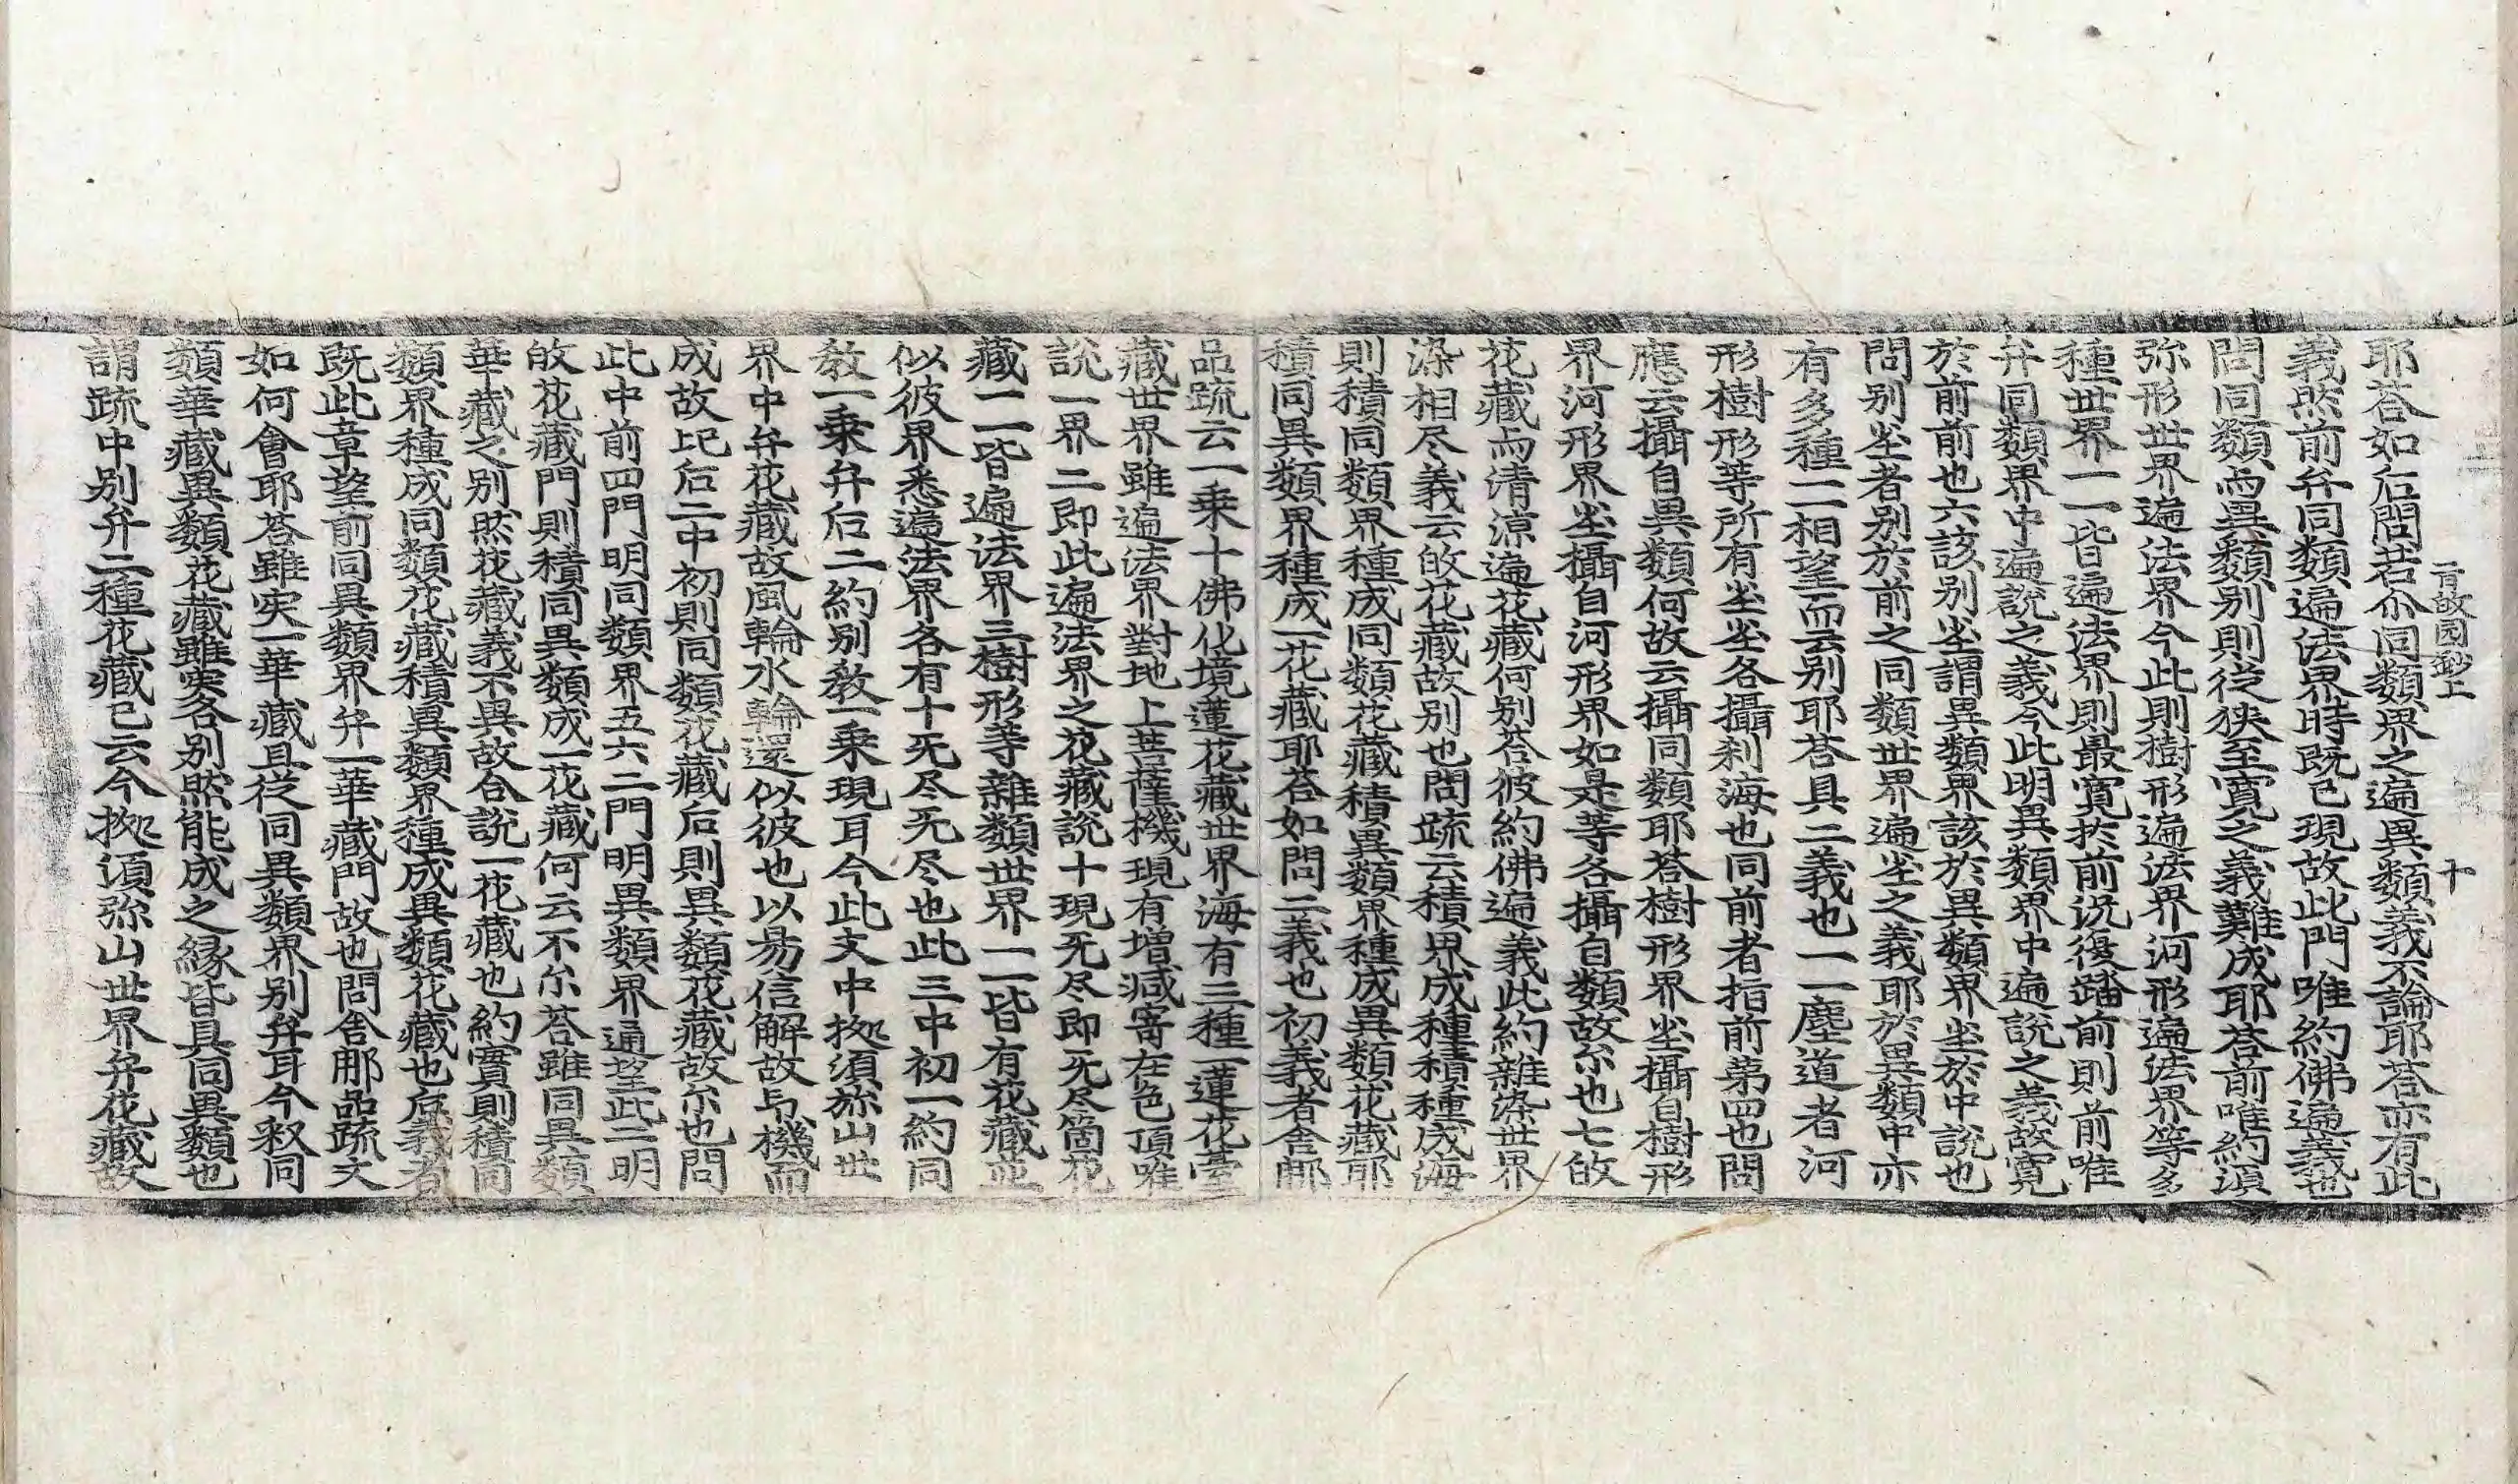 一百故园鈔上 十
耶荅如后問若尒同類界之遍異類義不論耶荅亦有此
義然前弁同類遍法界時既已現故此門唯約佛遍義也
問同類而異類別則從狹至寬之義難成耶荅前唯約湏
弥形世界遍法界今此則樹形遍法界河形遍法界等多
種世界一一皆遍法界則最寬於前況復踏前則前唯
弁同類界中遍說之義今此明異類界中遍說之義故寬
於前前也六該別坐謂異類界該於異類界坐於中說也
問別坐者別於前之同類世界遍坐之義耶於異類中亦
有多種一一相望而云別耶荅具二義也一一塵道者河
形樹形等所有坐坐各攝刹海也同前者指前第四也問
應云攝自異類何故云攝同類耶荅樹形界坐攝自樹形
界河形界坐攝自河形界如是等各攝自類故尒也七攽
花藏而清涼遍花藏何別荅彼約佛遍義此約雜染世界
染相尽義云攽花藏故別也問疏云積界成種積種成海
則積同類界種成同類花藏積異類界種成異類花藏耶
積同異類界種成一花藏耶荅如問二義也初義者舍那
品疏云一乘十佛化境蓮花藏世界海有三種一蓮花臺
藏世界雖遍法界對地上菩薩機現有增减寄在色頂唯
說一界二即此遍法界之花藏說十現旡尽即旡尽箇花
藏一一皆遍法界三樹形等雜類世界一一皆有花藏並
似彼界悉遍法界各有十旡尽旡尽也此三中初一約同
教一乘弁后二約別教一乘現耳今此文中擬須弥山世
界中弁花藏故風輪水輪還似彼也以易信解故与機而
成故比后二中初則同類花藏后則異類花藏故尒也問
此中前四門明同類界五六二門明異類界通望此二明
攽花藏門則積同異類成一花藏何云不尒荅雖同異類
華藏之別然花藏義不異故合說一花藏也約實則積同
類界種成同類花藏積異類界種成異類花藏也后義者
既此章望前同異類界弁一華藏門故也問舍那品疏文
如何會耶荅雖实一華藏且從同異類界別弁耳今釈同
類華藏異類花藏雖实各別然能成之緣皆具同異類也
謂疏中別弁二種花藏已云今擬須弥山世界弁花藏故